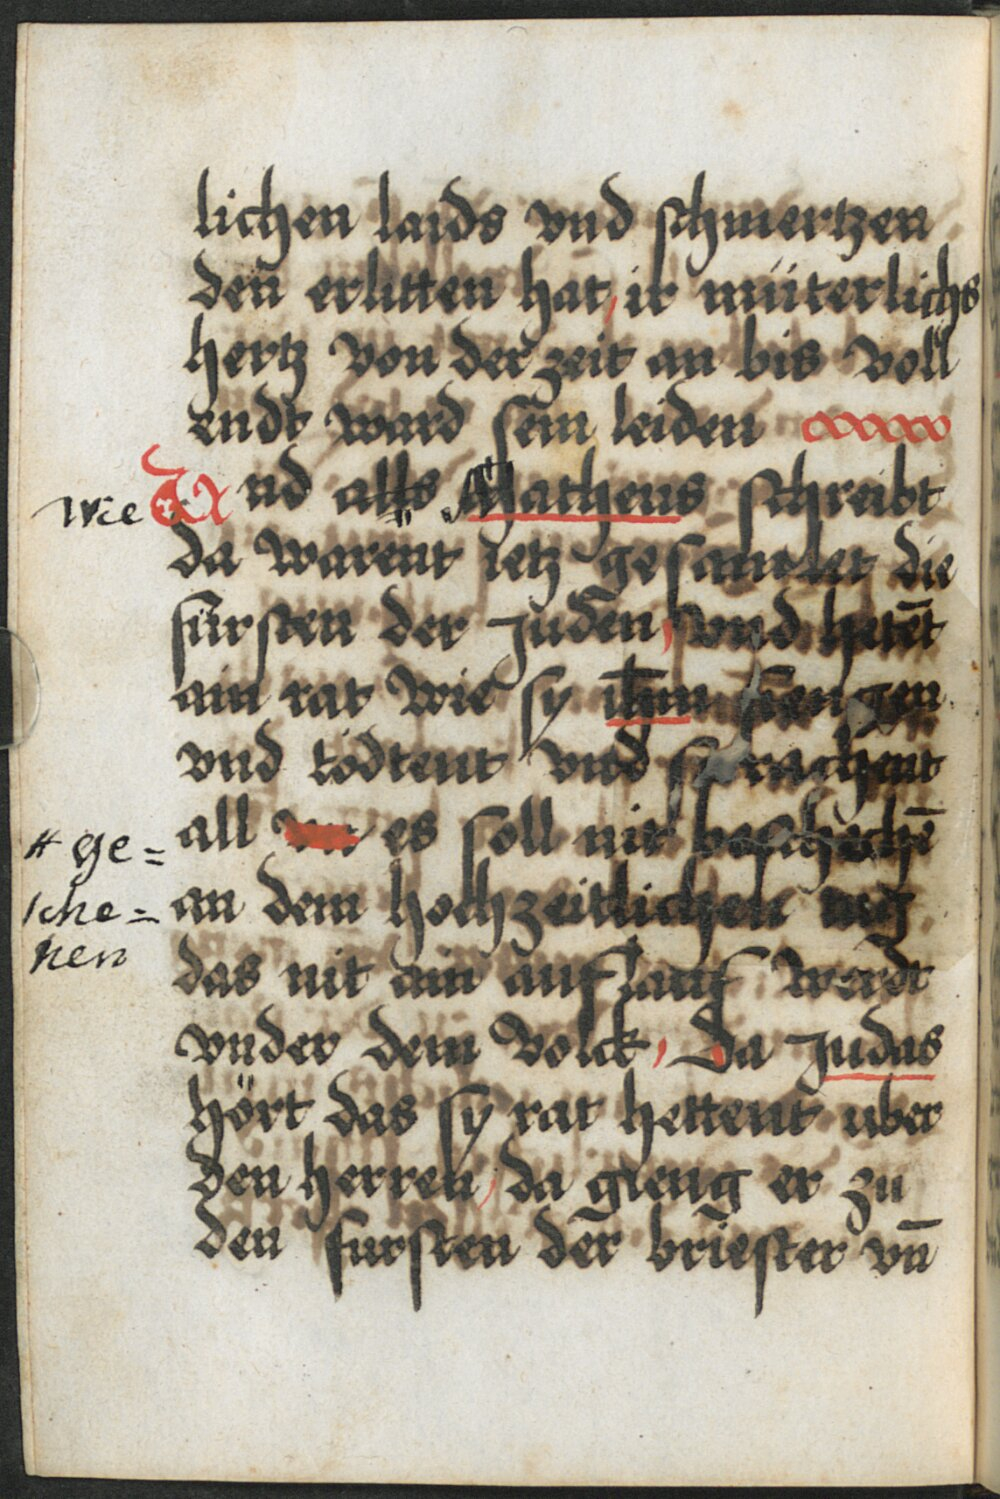 lichen laids vnd schmertzen
den erlitten hat, ir müterlichs
hertz von der zeit an bis voll
endt ward sein leiden
Wie Vnd alls Matheus schreibt
da warent ietz gesamlet die
fürsten der Juden, vnd hetēt
ain rat wie sy ihm fiengen
vnd tödtent vnd sprachent
all es soll nit beschechē
# ge=
sche=
hen
an dem hochzeitlichen tag
das nit ain auflauf werdt
vnder dem volck, Da Judas
hört das sy rat hettent uber
den herren, da gieng er zu
den fursten der briester vn̄